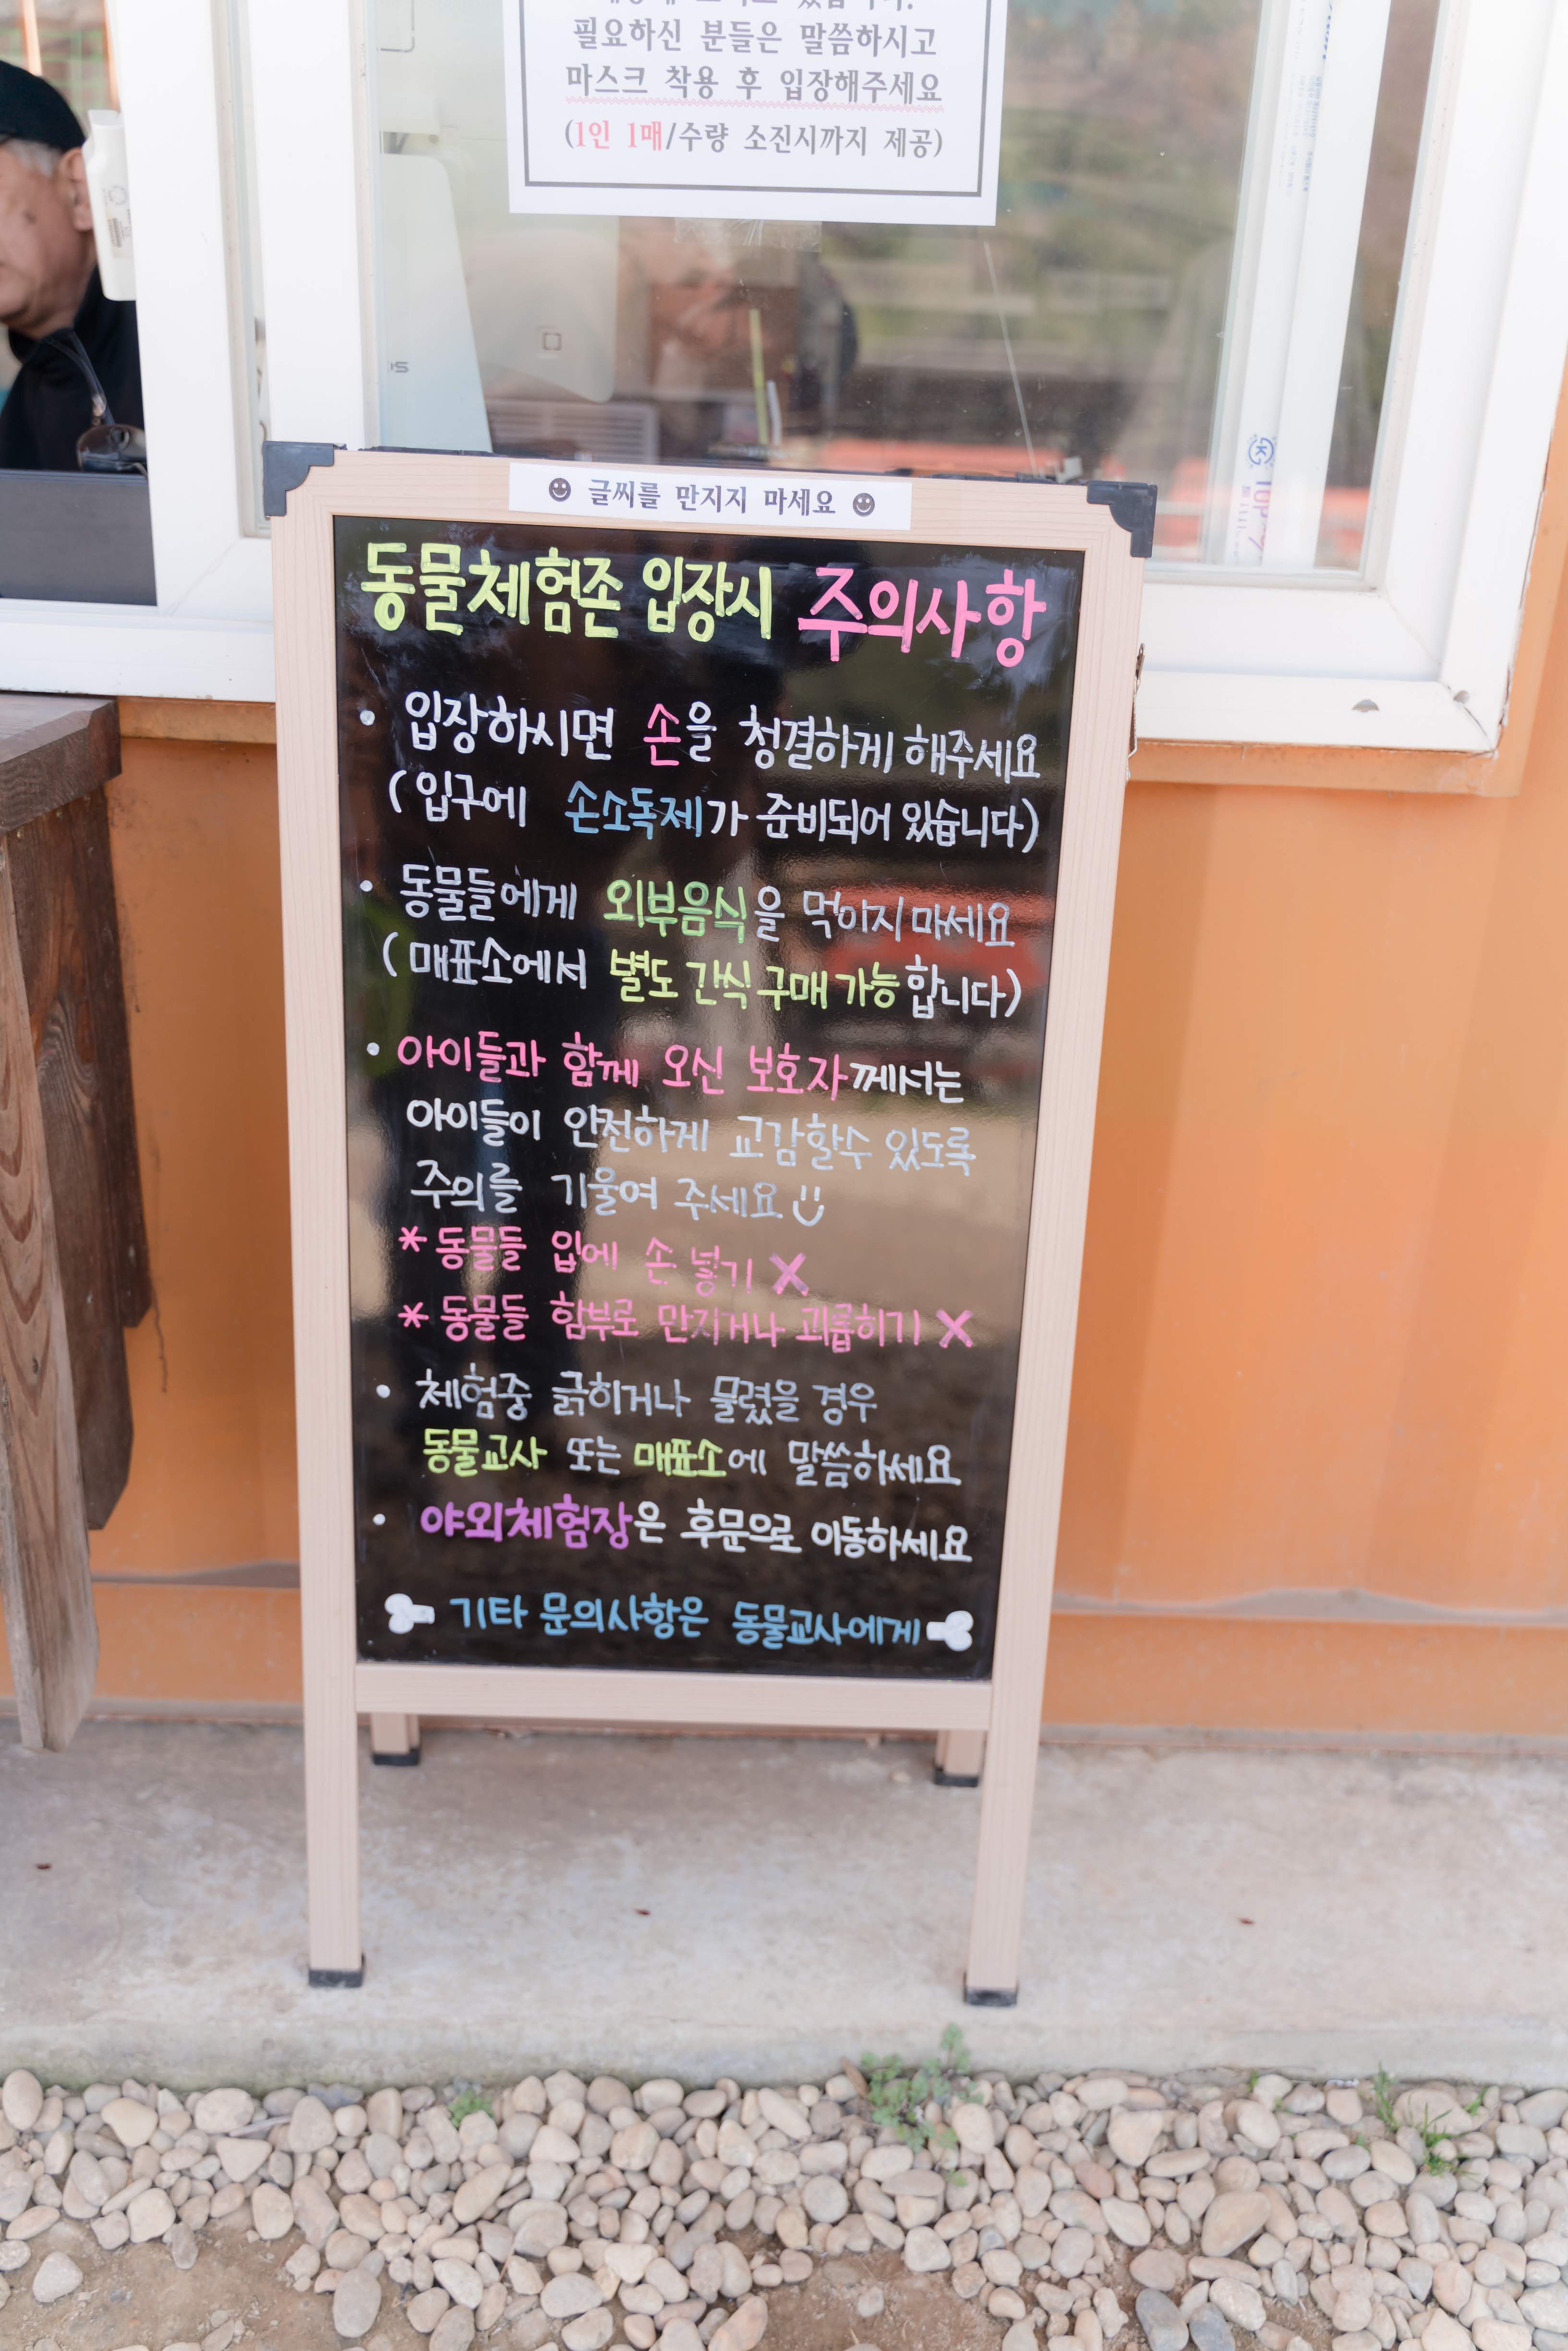 필요하신 분들은 말씀하시고
마스크 착용 후 입장해주세요
(1인 1매/수량 소진시까지 제공)
글씨를 만지지 마세요
동물체험존 입장시 주의사항
• 입장하시면 손을 청결하게 해주세요
(입구에 손소독제가 준비되어 있습니다)
• 동물들에게 외부음식을 먹이지 마세요
(매표소에서 별도 간식 구매 가능합니다)
• 아이들과 함께 오신 보호자께서는
아이들이 안전하게 교감할수 있도록
주의를 기울여 주세요
* 동물들 입에 손 넣기 X
* 동물들 함부로 만지거나 괴롭히기 X
• 체험중 긁히거나 물렸을 경우
동물교사 또는 매표소에 말씀하세요
• 야외체험장은 후문으로 이동하세요
기타 문의사항은 동물교사에게